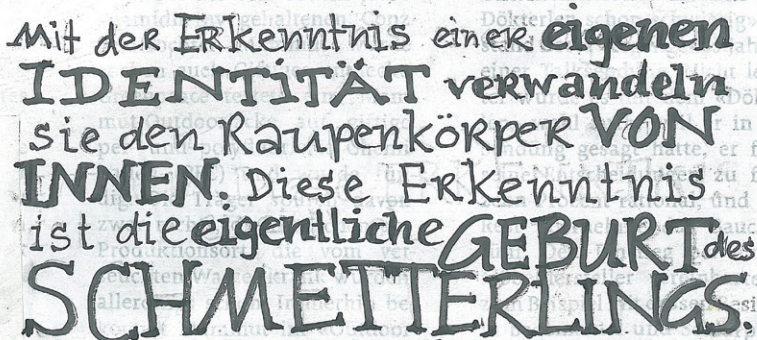 Mit der Erkenntnis einer eigenen
IDENTITÄT verwandeln
sie den Raupenkörper VON
INNEN. Diese Erkenntnis
ist die eigentliche GEBURT des
SCHMETTERLINGS.